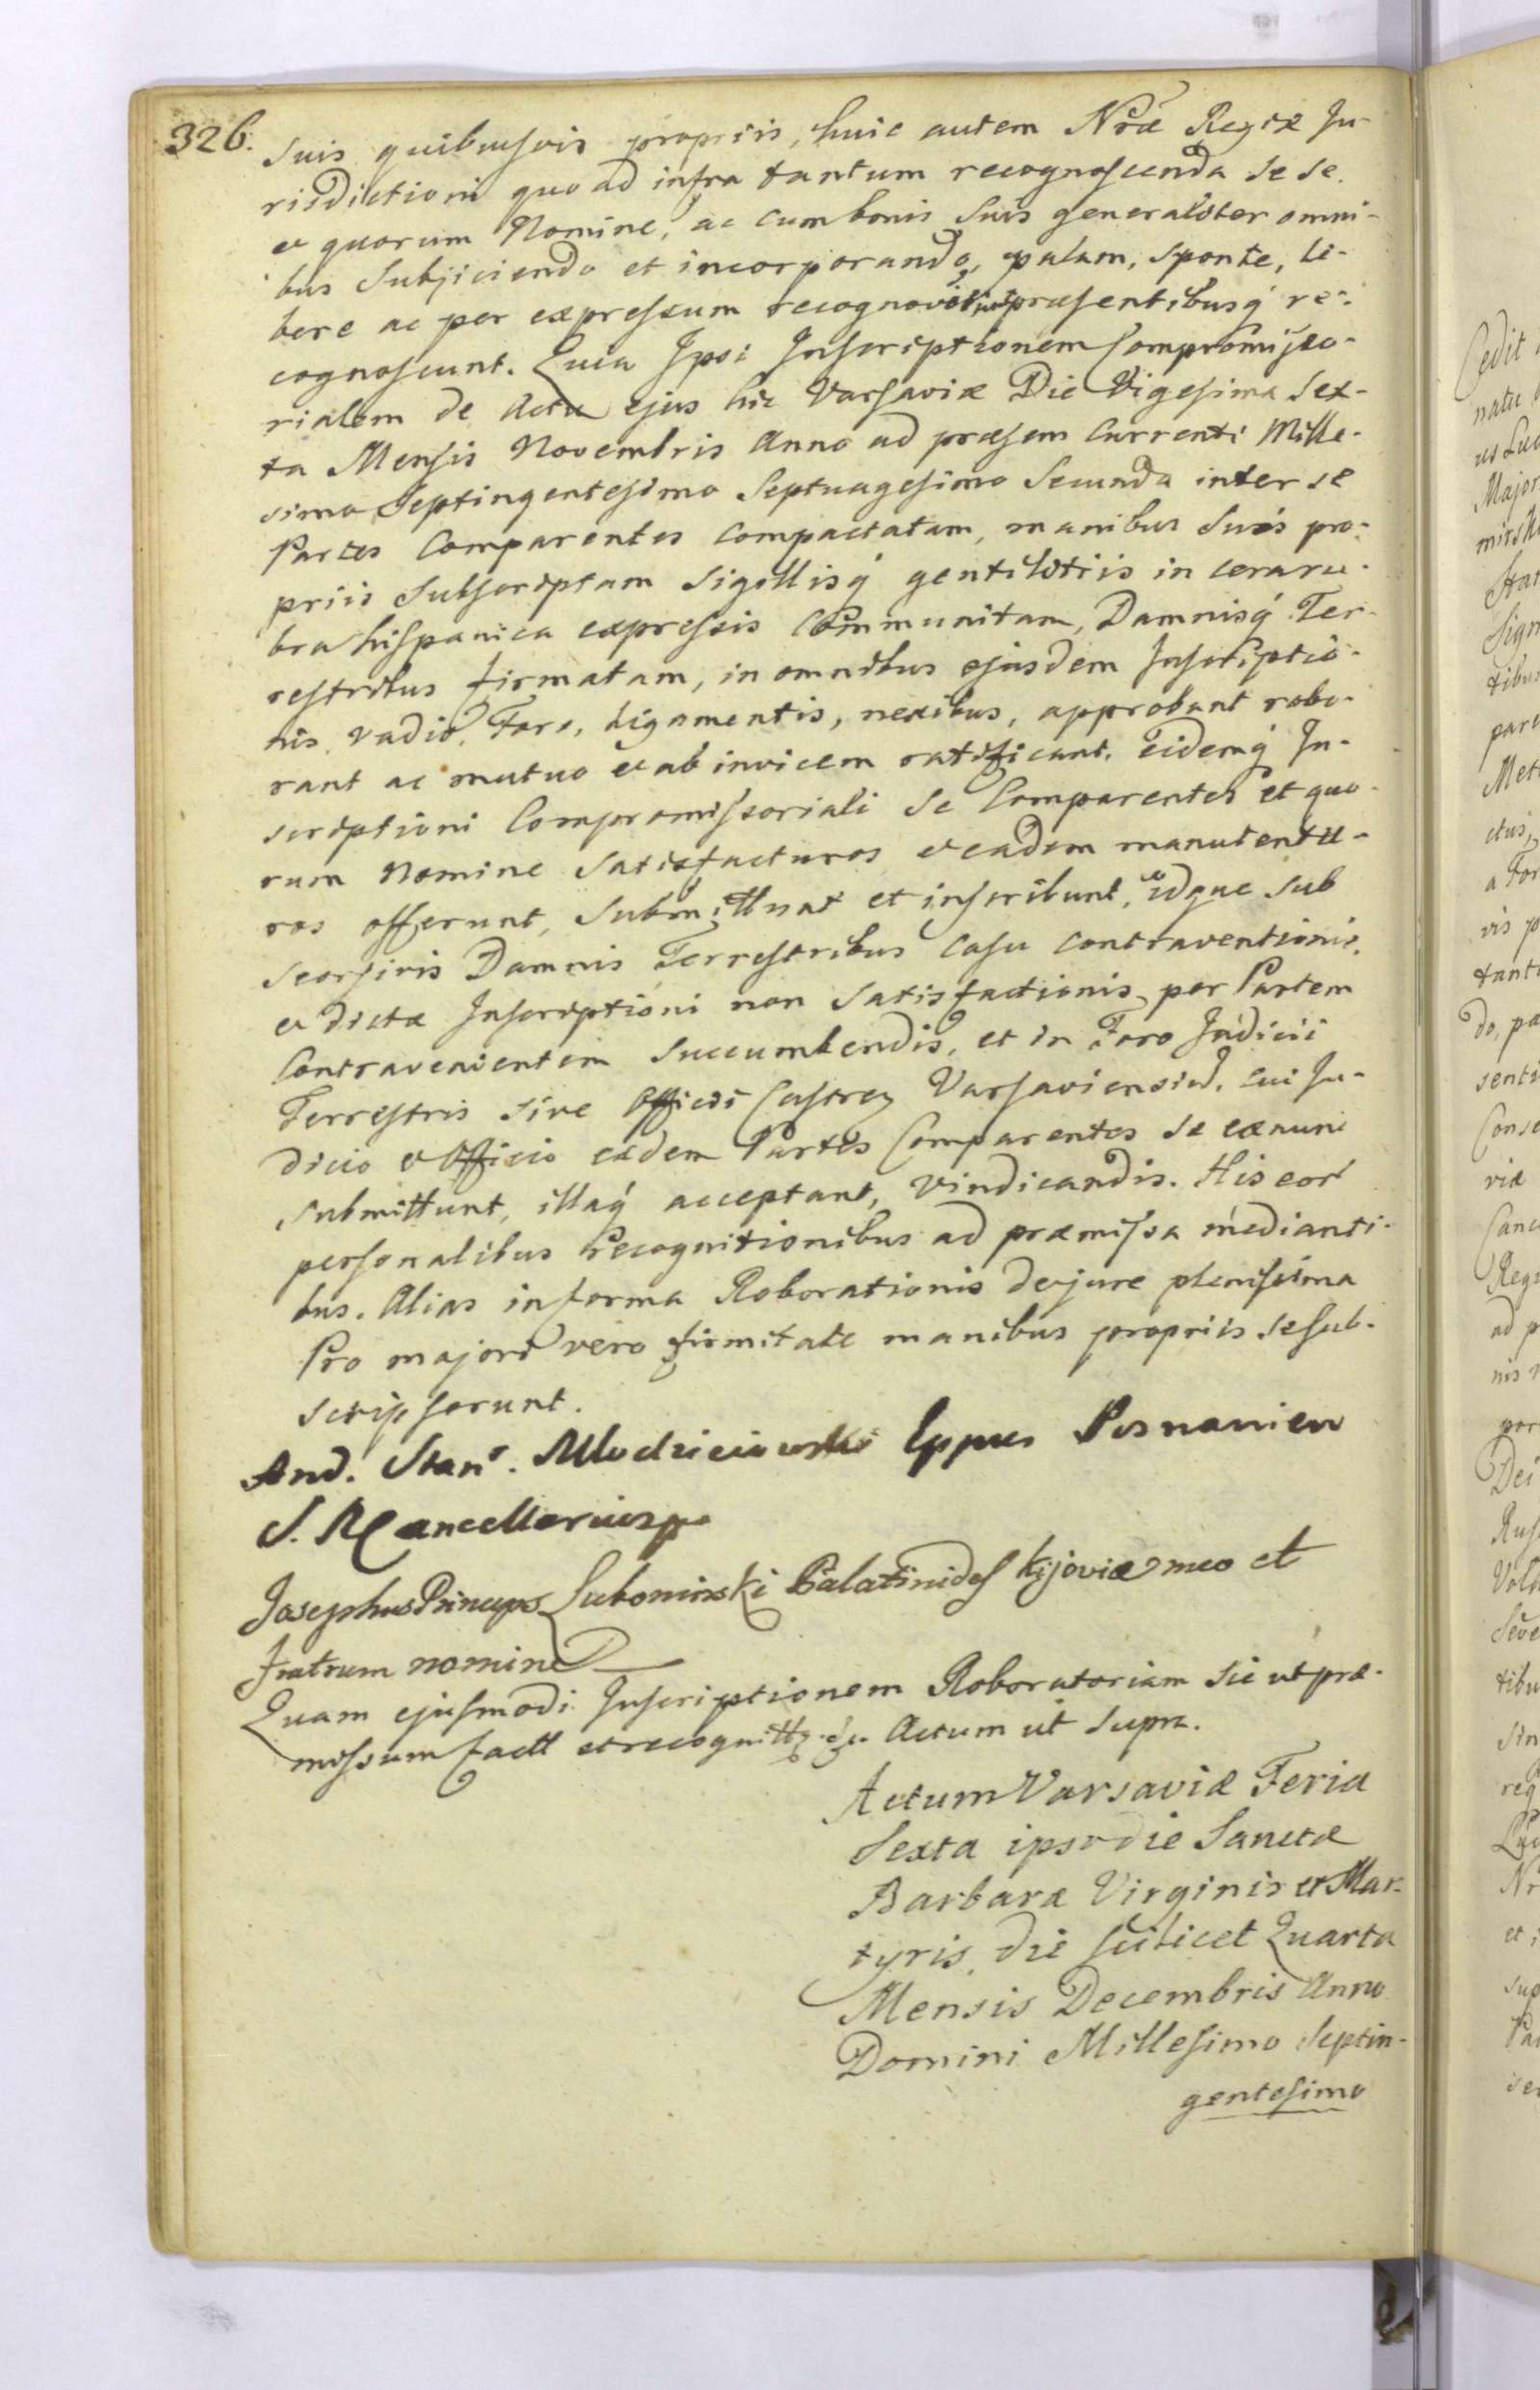 326.
suis quibusvis propriis, huic autem Nræ Regiæ Ju-
risdictioni quo ad infra tantum recognoscenda se se
et quorum Nomine, ac cum bonis suis generaliter omni-
bus subjiciendo et incorporando, palam, sponte, li-
bere ac per expressum recognoverunt præsentibusq́ re-
cognoscunt. Quia Ipsi Inscriptionem Compromisso-
rialem de Actu ejus hic Varsaviæ Die Vigesima Sex-
ta Mensis Novembris Anno ad præsem currenti Mille-
simo Septingentesimo Septuagesimo Secundo inter se
Partes Comparentes compactatam, manibus suis pro-
priis subscriptam Sigillisq́ gentilitiis in cera ru-
bra hispanica expressis Communitam, Damnisq́ Ter-
restribus firmatam, in omnibus ejusdem Inscriptio-
nis, vadio, Foro, ligamentis, nexibus, approbant robo-
rant ac mutuo et ab invicem ratificant. Eidemq́ In-
scriptioni Compromissoriali se Comparentes et quo-
rum nomine satisfacturos et eadem manutentu-
ros offerunt, submittunt et inscribunt, idque sub
seorsivis Damnis Terrestribus casu contraventionis,
et dictæ Inscriptioni non satisfactionis per Partem
Contravenientem succumbendis, et in Foro Judicii
Terrestris sive Officii Castren Varsaviensium, cui Ju-
dicio et Officio eædem Partes Comparentes se ex nunc
submittunt, illaq́ acceptant, vindicandis. His eor
personalibus recognitionibus ad præmissa medianti-
bus. Alias in forma Roborationis de jure plenissima
Pro majori vero firmitate manibus propriis se sub-
scripserunt.
And. Stans. Młodzieiowski Eppus Posnanien
S. R. Cancellarius
Josephus Princeps Lubomirski Palatinides Kijoviæ meo et
fratrum nomine
Quam ejusmodi Inscriptionem Roboratoriam sic ut præ-
missum fact et recognitt Actum ut supra.
Actum Varsaviæ Feria
Sexta ipso die Sanctæ
Barbaræ Virginis et Mar-
tyris, die scilicet Quarta
Mensis Decembris Anno
Domini Millesimo Septin-
gentesimo